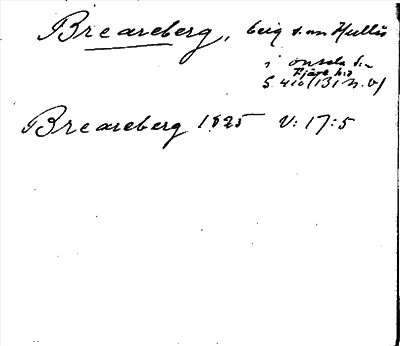 Breareberg, berg s. om Hullis
i Onsala sn
Fjäre hd
S. 410 (131 N.V)
Breareberg 1825 V: 17:5